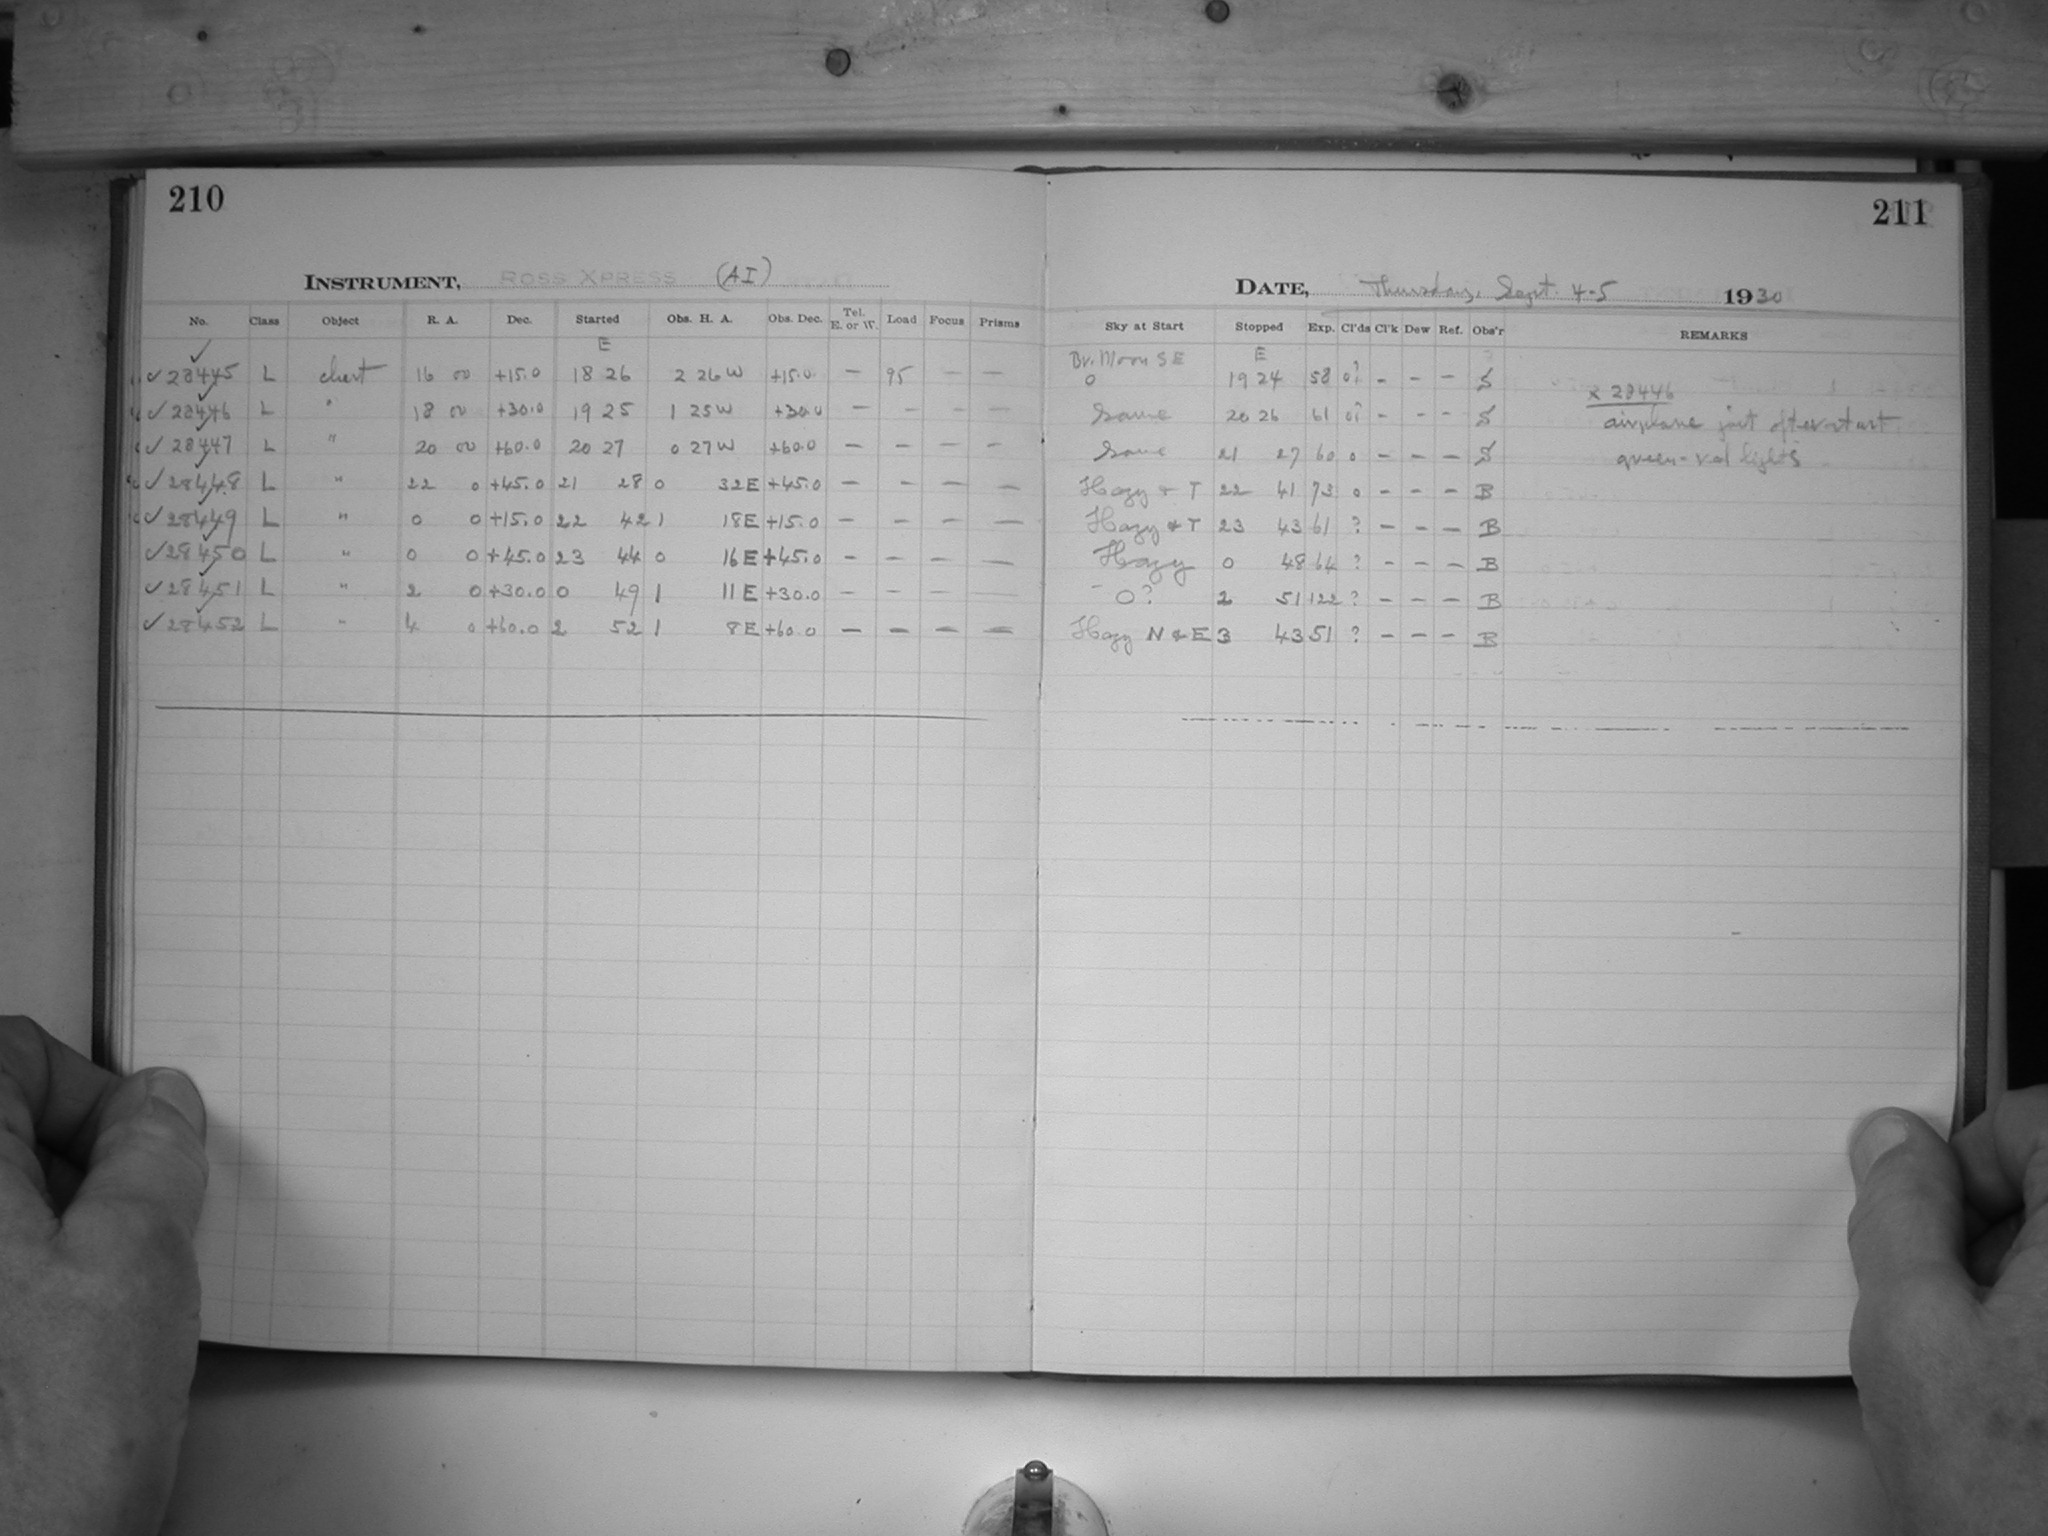 210
INSTRUMENT, ROSS XPRESS (AI)
No. Class Object R. A. Dec. Started Obs. H. A. Obs. Dec. Tel. E. or W. Load Focus Prisms
E
✓ 28445 L chart 16 00 +15.0 18 26 2 26 W +15.0 — 95 — —
✓ 28446 L " 18 00 +30.0 19 25 1 25 W +30.0 — — — —
✓ 28447 L " 20 00 +60.0 20 27 0 27 W +60.0 — — — —
✓ 28448 L " 22 0 +45.0 21 28 0 32 E +45.0 — — — —
✓ 28449 L " 0 0 +15.0 22 42 1 18 E +15.0 — — — —
✓ 28450 L " 0 0 +45.0 23 44 0 16 E +45.0 — — — —
✓ 28451 L " 2 0 +30.0 0 49 1 11 E +30.0 — — — —
✓ 28452 L " 4 0 +60.0 2 52 1 8 E +60.0 — — — —
211
DATE, Thursday, Sept. 4-5 1930
Sky at Start Stopped Exp. Cl'ds Cl'k Dew Ref. Obs'r REMARKS
Br. Moon S E E
0 19 24 58 0? - - - S x 28446
Same 20 26 61 0? - - - S airplane just after start
Same 21 27 60 0 - - - S green-red lights
Hazy & T 22 41 73 0 - - - B
Hazy & T 23 43 61 ? - - - B
Hazy 0 48 64 ? - - - B
0? 2 51 122 ? - - - B
Hazy N & E 3 43 51 ? - - - B